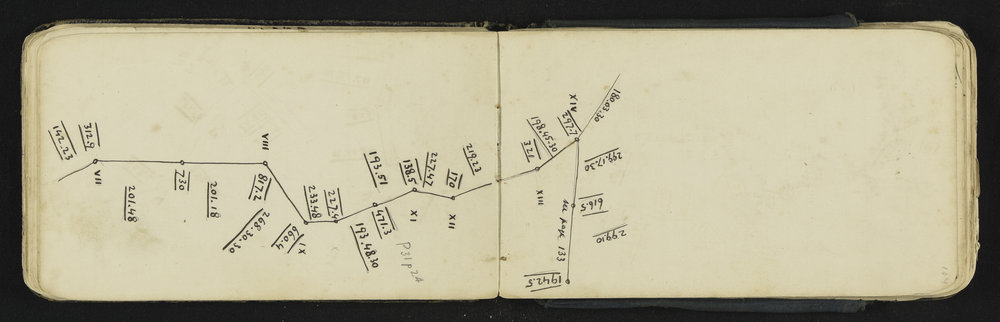 142.23
312.9
VII
201.48
730
201.18
VIII
817.2
268.30.30
660.4
IX
233.48
227.4
193.51
471.3
193.48.30
138.5
XI
P31p24
227.47
170
XII
219.23
322
XIII
198.45.30
297.7
XIV
180.03.30
299.17.30
616.5
see page 133
299.10
1942.5